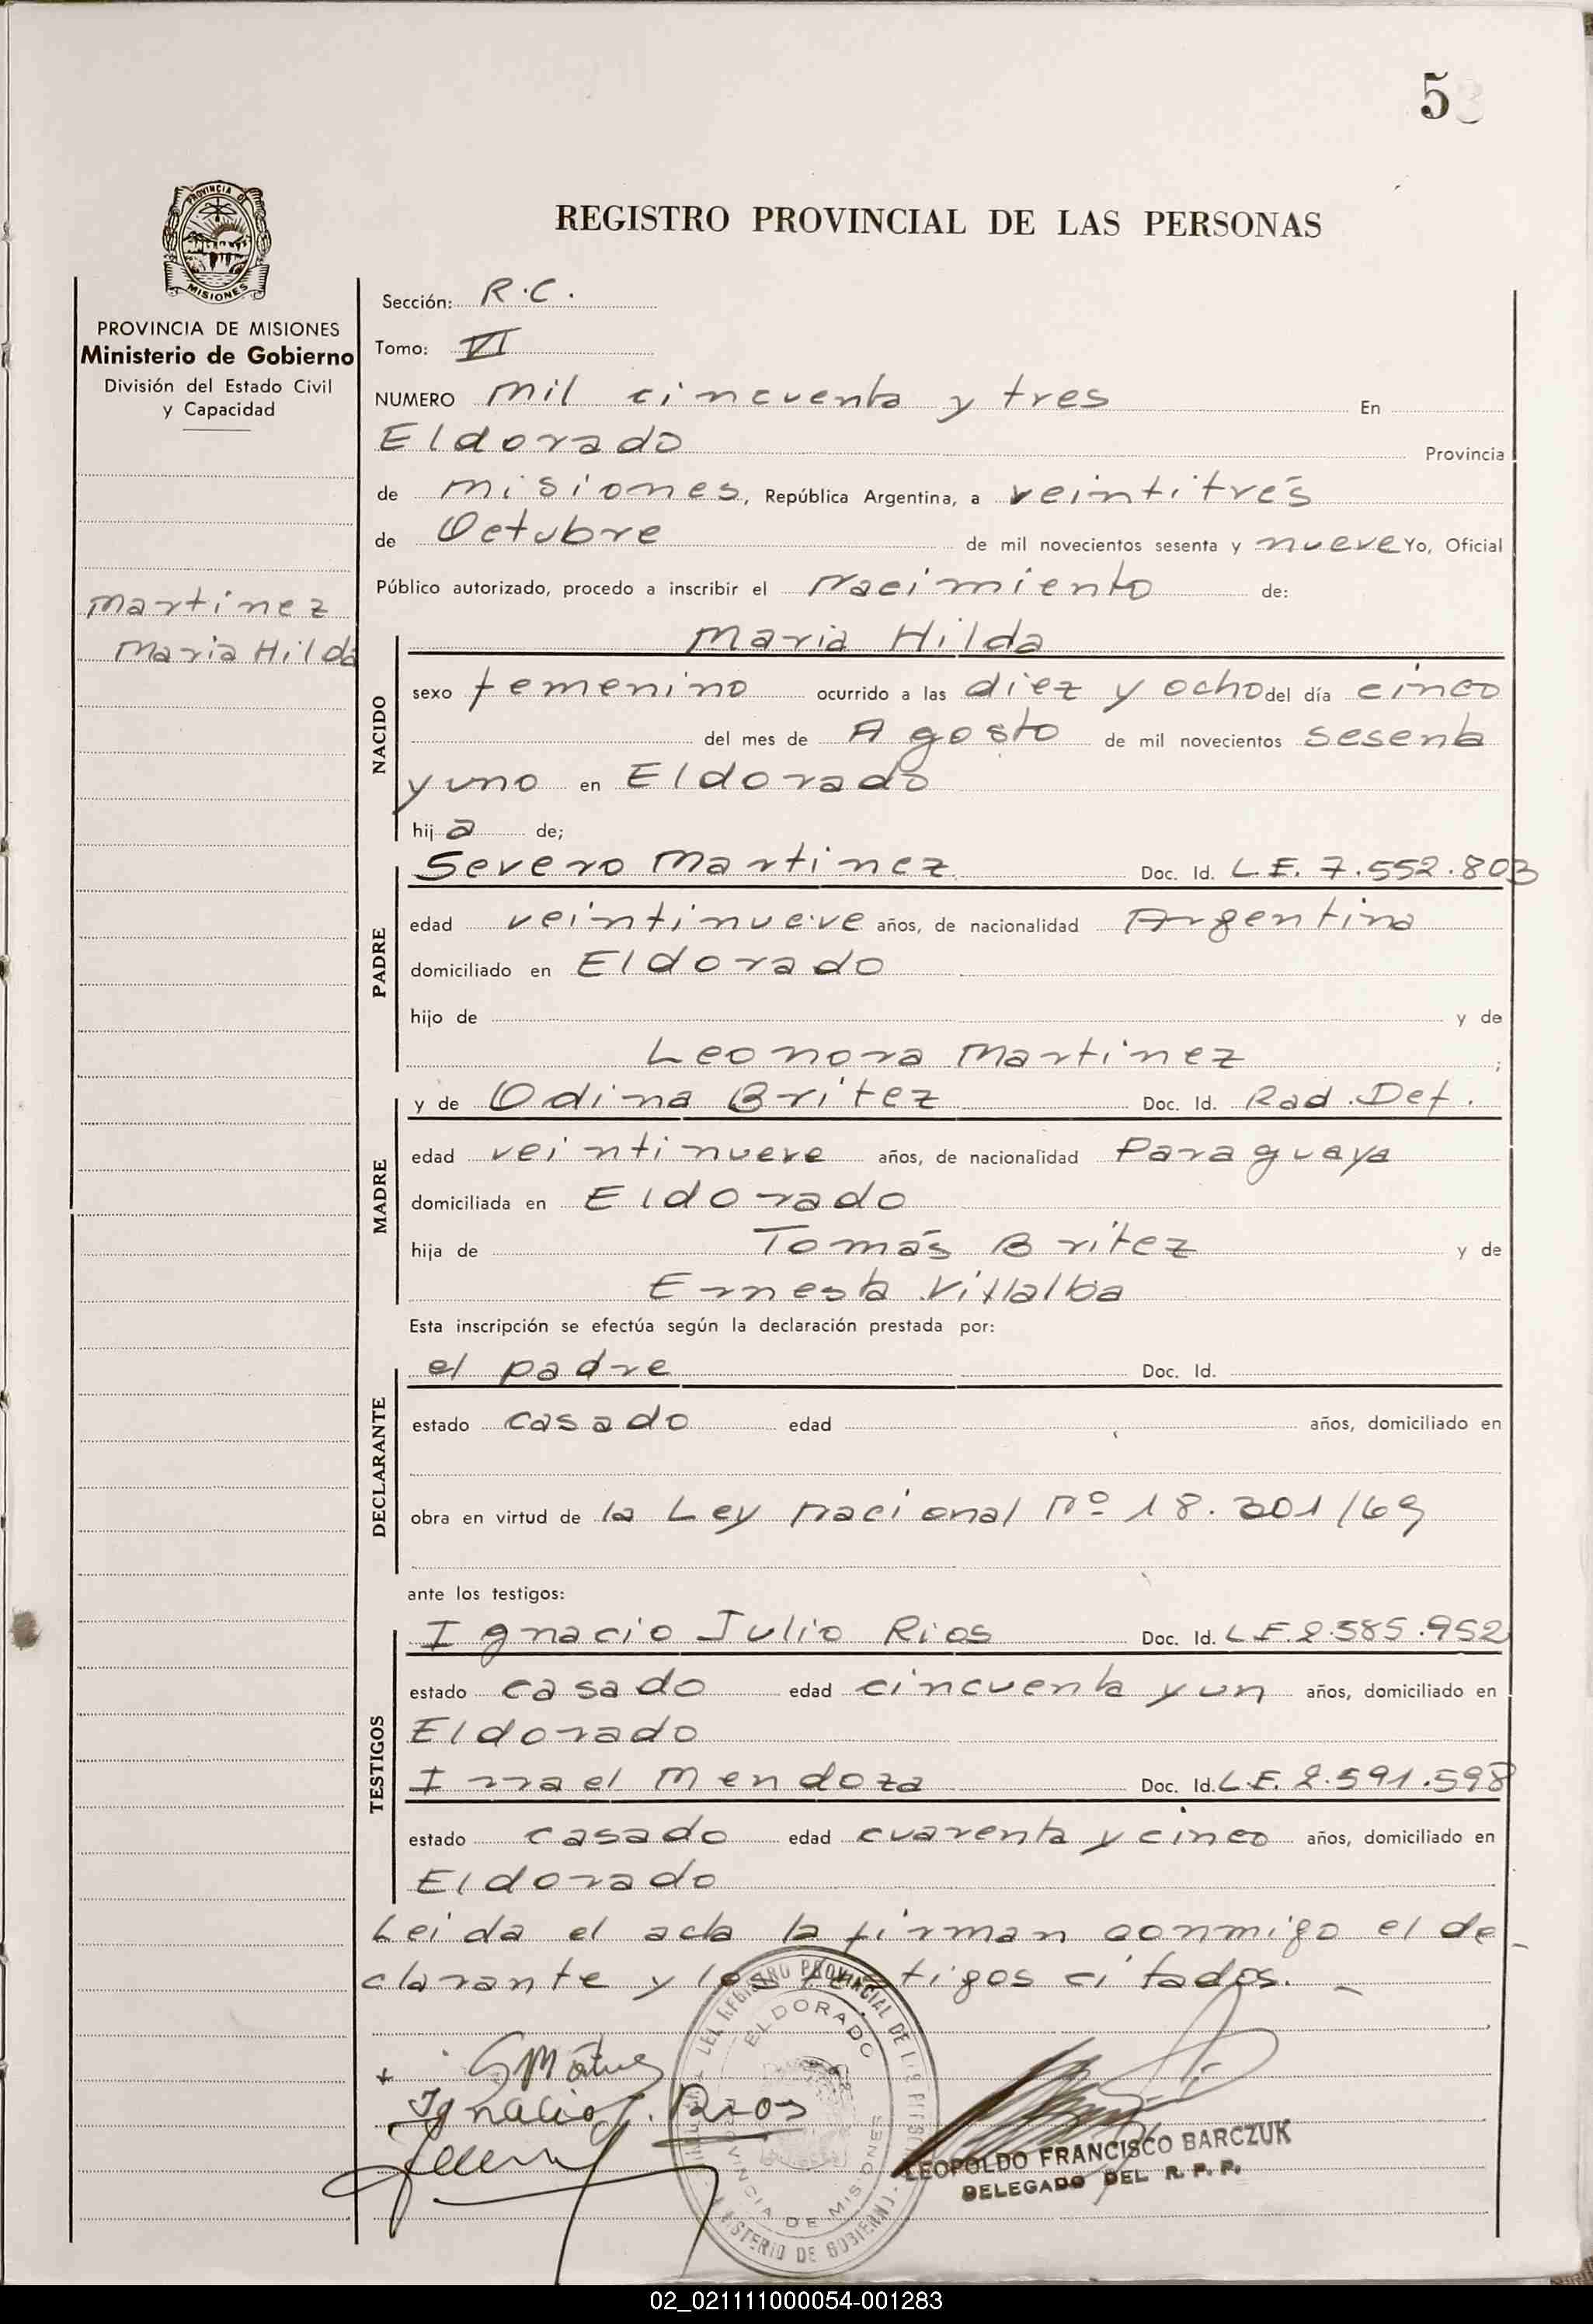 53
PROVINCIA DE
MISIONES
REGISTRO PROVINCIAL DE LAS PERSONAS
PROVINCIA DE MISIONES
Ministerio de Gobierno
División del Estado Civil
y Capacidad
Martinez
Maria Hilda
Sección: R.C.
Tomo: VI
NUMERO mil cincuenta y tres En
Eldorado Provincia
de Misiones, República Argentina, a veintitrés
de Octubre de mil novecientos sesenta y nueve Yo, Oficial
Público autorizado, procedo a inscribir el Nacimiento de:
NACIDO
Maria Hilda
sexo femenino ocurrido a las diez y ocho del día cinco
del mes de Agosto de mil novecientos sesenta
y uno en Eldorado
hija de;
PADRE
Severo Martinez Doc. Id. L.E. 7.552.803
edad veintinueve años, de nacionalidad Argentina
domiciliado en Eldorado
hijo de y de
Leonora Martinez ;
MADRE
y de Odina Britez Doc. Id. Rad. Def.
edad veintinueve años, de nacionalidad Paraguaya
domiciliada en Eldorado
hija de Tomás Britez y de
Ernesta Villalba
Esta inscripción se efectúa según la declaración prestada por:
DECLARANTE
el padre Doc. Id.
estado casado edad años, domiciliado en
obra en virtud de la Ley Nacional Nº 18.301/69
ante los testigos:
TESTIGOS
Ignacio Julio Rios Doc. Id. L.E. 2.585.952
estado casado edad cincuenta y un años, domiciliado en
Eldorado
Irrael Mendoza Doc. Id. L.E. 2.591.598
estado casado edad cuarenta y cinco años, domiciliado en
Eldorado
Leida el acta la firman conmigo el de-
clarante y los testigos citados.
Ignacio J. Rios
DEL REGISTRO PROVINCIAL DE LAS PERSONAS
ELDORADO
PROVINCIA DE MISIONES
MINISTERIO DE GOBIERNO
LEOPOLDO FRANCISCO BARCZUK
DELEGADO DEL R. P. P.
02_021111000054-001283